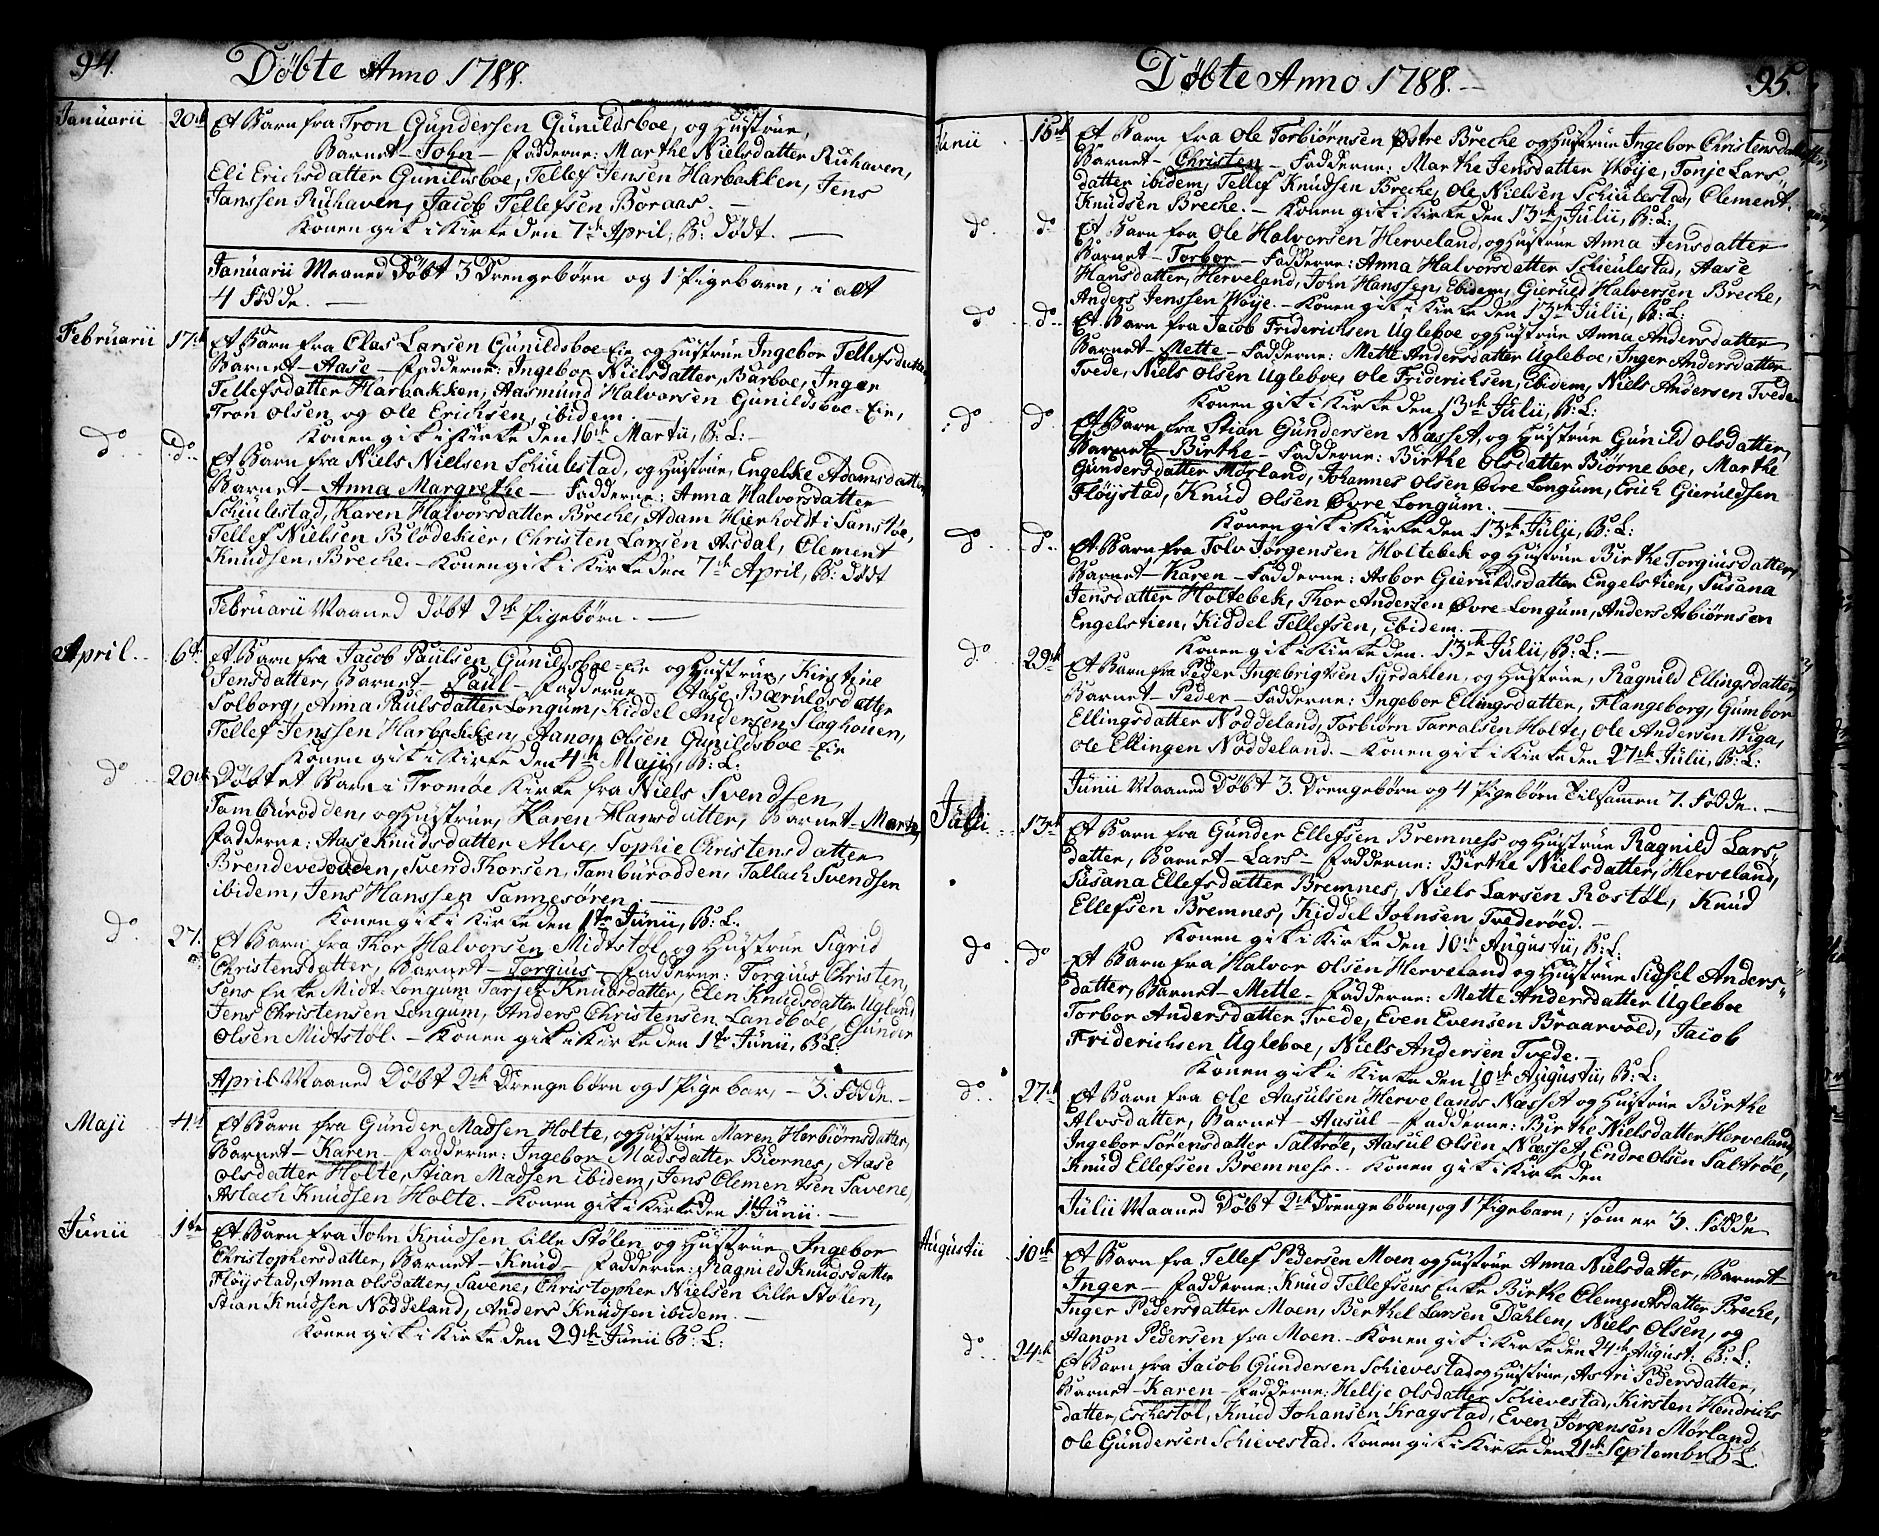 94.
Döbte Anno 1788.
Januarii 20de Et Barn fra Tron Gundersen Gunildsboe, og Hustrue,
Barnet - John - Fadderne: Marthe Nielsdatter Ruhaven,
Eli Erichsdatter Gunildsboe, Tellef Jensen Harbakken, Jens
Janssen Ruhaven, Jacob Tellefsen Boraas. -
Konen gik i Kirke den 7de April, B: Födt. -
Januarii Maaned Döbt 3 Drengebörn og 1 Pigebarn, i alt
4 Födde. -
Februarii 17de Et Barn fra Olas Larsen Gunildsboe-Eie og Hustrue Ingebor Tellefsdatter,
Barnet - Aase - Fadderne: Ingebor Nielsdatter, Barboe, Inger
Tellefsdatter Harbakken, Aasmund Halvorsen Gunildsboe-Eie,
Tron Olsen, og Ole Erichsen, ibidem. -
Konen gik i Kirke den 16de Martii, B: L: -
do do Et Barn fra Niels Nielsen Schiulestad, og Hustrue, Engelke Adamsdatter
Barnet - Anna Margrethe - Fadderne: Anna Halvorsdatter
Schiulestad, Karen Halvorsdatter Breche, Adam Hierholdt i Sanstöe,
Tellef Nielsen Blödekier, Christen Larsen Asdal, Clement
Knudsen, Breche. - Konen gik i Kirke den 7de April, B: Födt
Februarii Maaned Döbt 2de Pigebörn. -
April 6te Et Barn fra Jacob Paulsen Gunildsboe-Eie og Hustrue, Kirstine
Jensdatter, Barnet - Paul - Fadderne: Aase Bærulds datter
Solborg, Anna Paulsdatter Longum, Kiddel Andersen Slaghouen,
Tellef Jenssen Harbakken, Aanon Olsen Gunildsboe-Eie
Konen gik i Kirke den 4de Maji, B: L:
do 20de Döbt et Barn i Tromöe Kirke fra Niels Svendsen,
Tamburodden, og Hustrue, Karen Hansdatter, Barnet - Marte,
Fadderne: Aase Knudsdatter Alve, Sophie Christensdatter
Brendevedden, Svend Thorsen, Tamburodden, Tallach Svendsen
ibidem, Jens Hanssen Sannesören. -
Konen gik i Kirke den 1te Junii, B: L.
do 27. Et Barn fra Thor Halvorsen Midtstöl, og Hustrue Sigrid
Christensdatter, Barnet - Torgius - Fadderne: Torgius Christen,
sens Enke Midt-Longum Tarjer Knudsdatter, Elen Knudsdatter Ugland
Jens Christensen Longum, Anders Christensen Landböe, Gunder
Olsen Midtstöl. - Konen gik i Kirke den 1te Junii, B: L:
April Maaned Döbt 2de Drengebörn og 1 Pigebarn, - 3. Födde. -
Maji 4de Et Barn fra Gunder Madsen Holte, og Hustrue Maren Herbiörnsdatter,
Barnet - Karen - Fadderne: Ingebor Madsdatter Biornes, Aase
Olsdatter Holte, Stian Madsen ibidem, Jens Clementsen Savene,
Aslach Knudsen Holte. - Konen gik i Kirke den 1te Junii. -
Junii 1te Et Barn fra John Knudsen Lille Stölen, og Hustrue Ingebor
Christophersdatter, Barnet - Knud - Fadderne: Ragnild Knudsdatter
Flöystad, Anna Olsdatter, Savene, Christopher Nielsen Lille Stölen,
Stian Knudsen Noddeland, Anders Knudsen ibidem. -
Konen gik i Kirke den 29de Junii B: L:
95.
Döbte Anno 1788. -
Junii 15de Et Barn fra Ole Torbiörnsen Östre Breche og Hustrue Ingebor Christensdatter,
Barnet - Christen - Fadderne: Marthe Jensdatter Wöije, Tonje Lars
datter ibidem, Tellef Knudsen Breche, Ole Nielsen Schiulestad, Clement
Knudsen Breche. - Konen gik i Kirke den 13de Julii, B: L:
do do Et Barn fra Ole Halvorsen Herveland, og Hustrue Anna Jensdatter
Barnet - Torbor - Fadderne: Anna Halvorsdatter Schieulestad, Aase
Hansdatter, Herveland, John Hanssen, Ebidem, Gieruld Halversen Breche,
Anders Jenssen Wöije. - Konen gik i Kirke den 13de Julii, B: L:
do do Et Barn fra Jacob Friderichsen Ugleboe og Hustrue Anna Andersdatter
Barnet - Mette - Fadderne: Mette Andersdatter Ugleboe, Inger Andersdatter
Tvede, Niels Olsen Ugleboe, Ole Friderichsen, Ebidem, Niels Andersen Tvede
Konen gik i Kirke den 13de Julii, B: L:
do do Et Barn fra Stian Gundersen Næsset, og Hustrue Gunild Olsdatter,
Barnet - Birthe - Fadderne: Birthe Olsdatter Biörneboe, Marthe
Gundersdatter Mörland, Johannes Olsen Övre Longum, Erich Gieruldsen
Flöijstad, Knud Olsen Övre Longum. -
Konen gik i Kirke den 13de Julii, B: L:
do do Et Barn fra Tolv Jörgensen Holtebek og Hustrue Birthe Torgiusdatter,
Barnet - Karen - Fadderne: Asbor Gieruldsdatter Engelstien, Susana
Jensdatter Holtebek, Thor Andersen Övre-Longum, Anders Asbiörnsen
Engelstien, Kiddel Tellefsen, Ebidem. -
Konen gik i Kirke den 13de Julii, B: L: -
do 29de Et Barn fra Peder Ingebrigtsen Syrdahlen, og Hustrue, Ragnild Ellingsdatter,
Barnet - Peder - Fadderne: Ingebor Ellingsdatter, Flangeborg, Gumbor
Ellingsdatter Noddeland, Torbiörn Tarralsen Holte, Ole Andersen Wiga,
Ole Ellingen Noddeland. - Konen gik i Kirke den 27de Julii, B: L:
Junii Maaned Döbt 3. Drengebörn og 4 Pigebörn Tilsammen 7. Födde. -
Julii 13de Et Barn fra Gunder Ellefsen Bremness og Hustrue Ragnild Lars
datter, Barnet - Lars - Fadderne: Birthe Nielsdatter, Herveland,
Susana Ellefsdatter Bremnes, Niels Larsen Rostöl, Knud
Ellefsen Bremnes, Kiddel Johnsen Tvederöed. -
Konen gik i Kirke den 10de Augustii, B: L:
do do Et Barn fra Halvor Olsen Herveland og Hustrue Sidsel Anders
datter, Barnet - Mette - Fadderne: Mette Andersdatter Ugleboe
Torbor Andersdatter Tvede, Even Evensen Braarvold, Jacob
Friderichsen Ugleboe, Niels Andersen Tvede. -
Konen gik i Kirke den 10de Augustii, B: L:
do 27de Et Barn fra Ole Aasulsen Hervelands Næsset og Hustrue Birthe
Alvsdatter, Barnet - Aasul - Fadderne: Birthe Nielsdatter Herveland,
Ingebor Sörensdatter Saltröe, Aasul Olsen Næsset, Endre Olsen Saltröe,
Knud Ellefsen Bremness. - Konen gik i Kirke den
Julii Maaned Döbt 2de Drengebörn, og 1 Pigebarn, som er 3. Födde
Augustii 10de Et Barn fra Tellef Pedersen Moen og Hustrue Anna Nielsdatter, Barnet -
Inger - Fadderne: Knud Tellefsens Enke Birthe Clementsdatter Breche,
Inger Pedersdatter Moen, Berthel Larsen Dahlen, Niels Olsen, og
Aanon Pedersen fra Moen. - Konen gik i Kirke den 24de August: B: L:
do 24de Et Barn fra Jacob Gundersen Schievestad og Hustrue, Astri Pedersdatter,
Barnet - Karen - Fadderne: Hellje Olsdatter Schievestad, Kirsten Hendrichs
datter, Eschestöl, Knud Johansen Kragstad, Even Jörgensen Mörland,
Ole Gundersen Schievestad. Konen gik i Kirke den 21de September B: L.